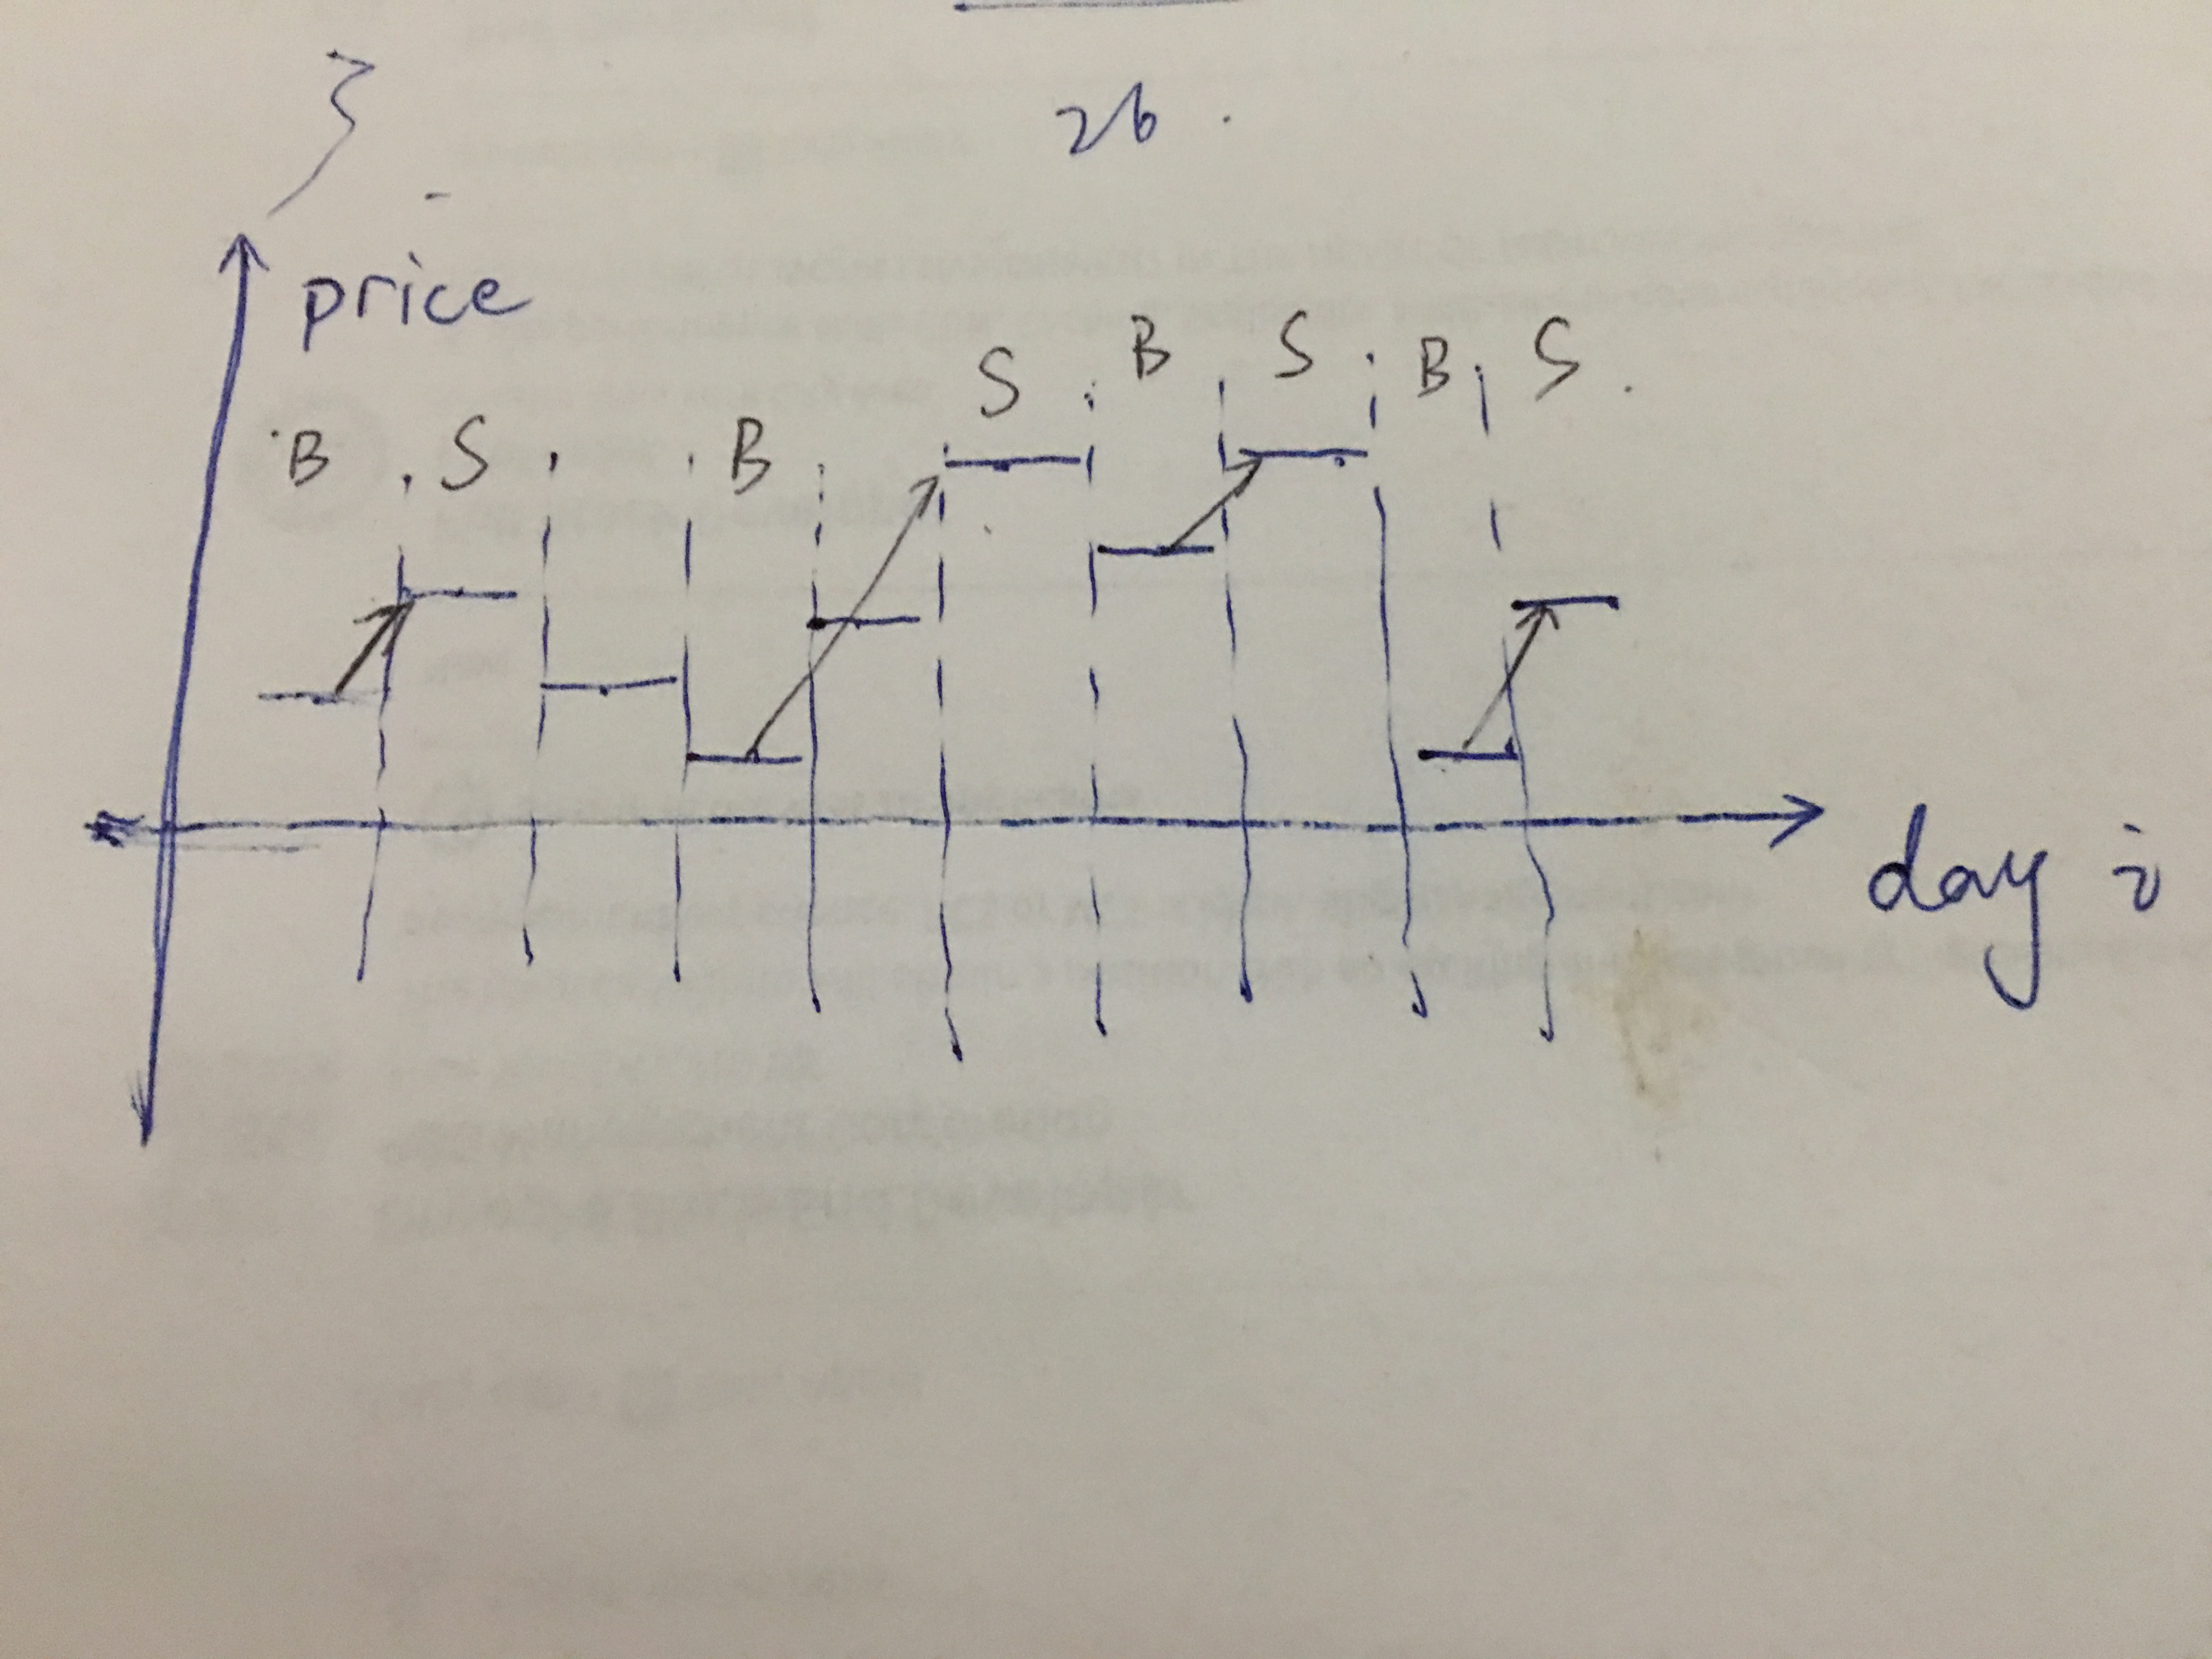 price
B S B S B S B S
day i